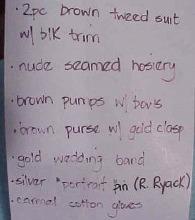 · 2pc brown tweed suit
w/ blk trim
· nude seamed hosiery
· brown pumps w/ bows
· brown purse w/ gold clasp
· gold wedding band
· silver "portrait" pin (R. Ryack)
· carmel cotton gloves